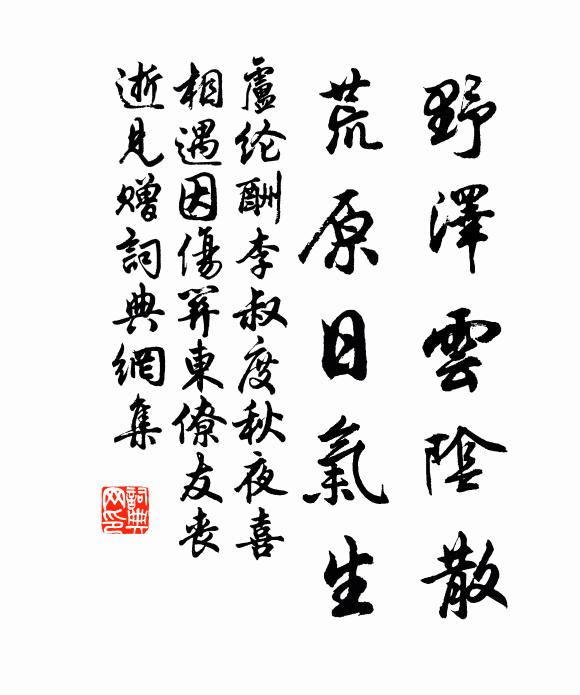 野澤雲陰散
荒原日氣生
盧纶酬李叔度秋夜喜
相遇因傷関東僚友喪
逝見贈詞典網集
詞典网印